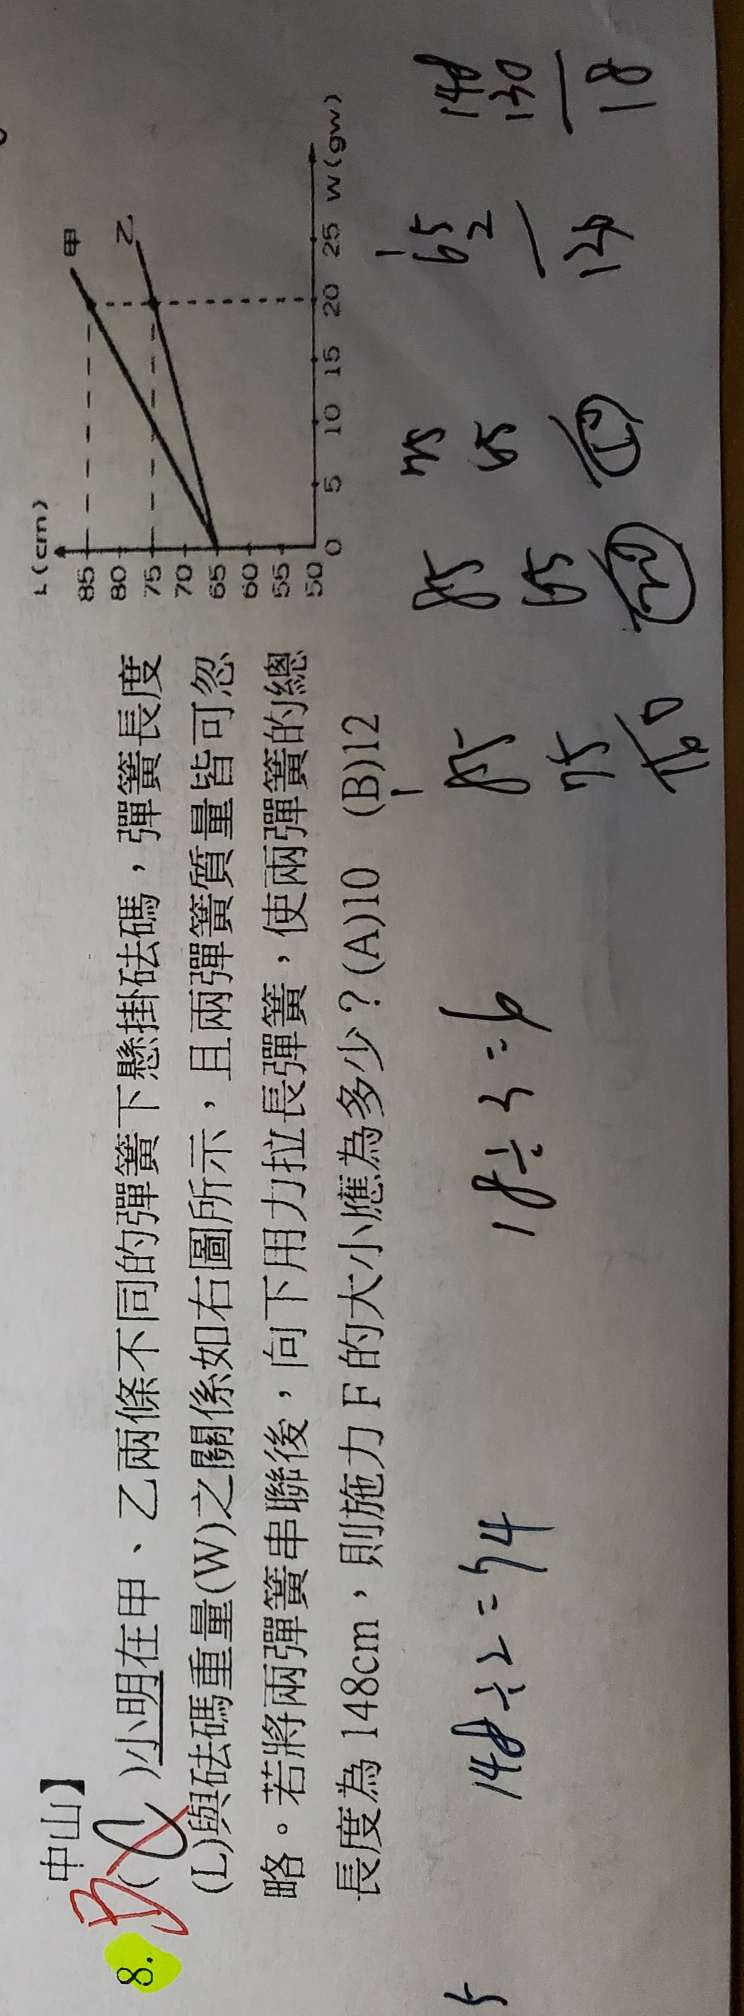 中山】
8.
B
( )小明在甲、乙兩條不同的彈簧下懸掛砝碼，彈簧長度
(L)與砝碼重量(W)之關係如右圖所示，且兩彈簧質量皆可忽
略。若將兩彈簧串聯後，向下用力拉長彈簧，使兩彈簧的總
長度為 148cm，則施力 F 的大小應為多少？(A)10 (B)12
L(cm)
85
80
75
70
65
60
55
50
0 5 10 15 20 25 W(gw)
甲
乙
5
148÷2=74
18÷3=6
85
75
160
85
65
20
75
65
10
65
2
130
148
130
18